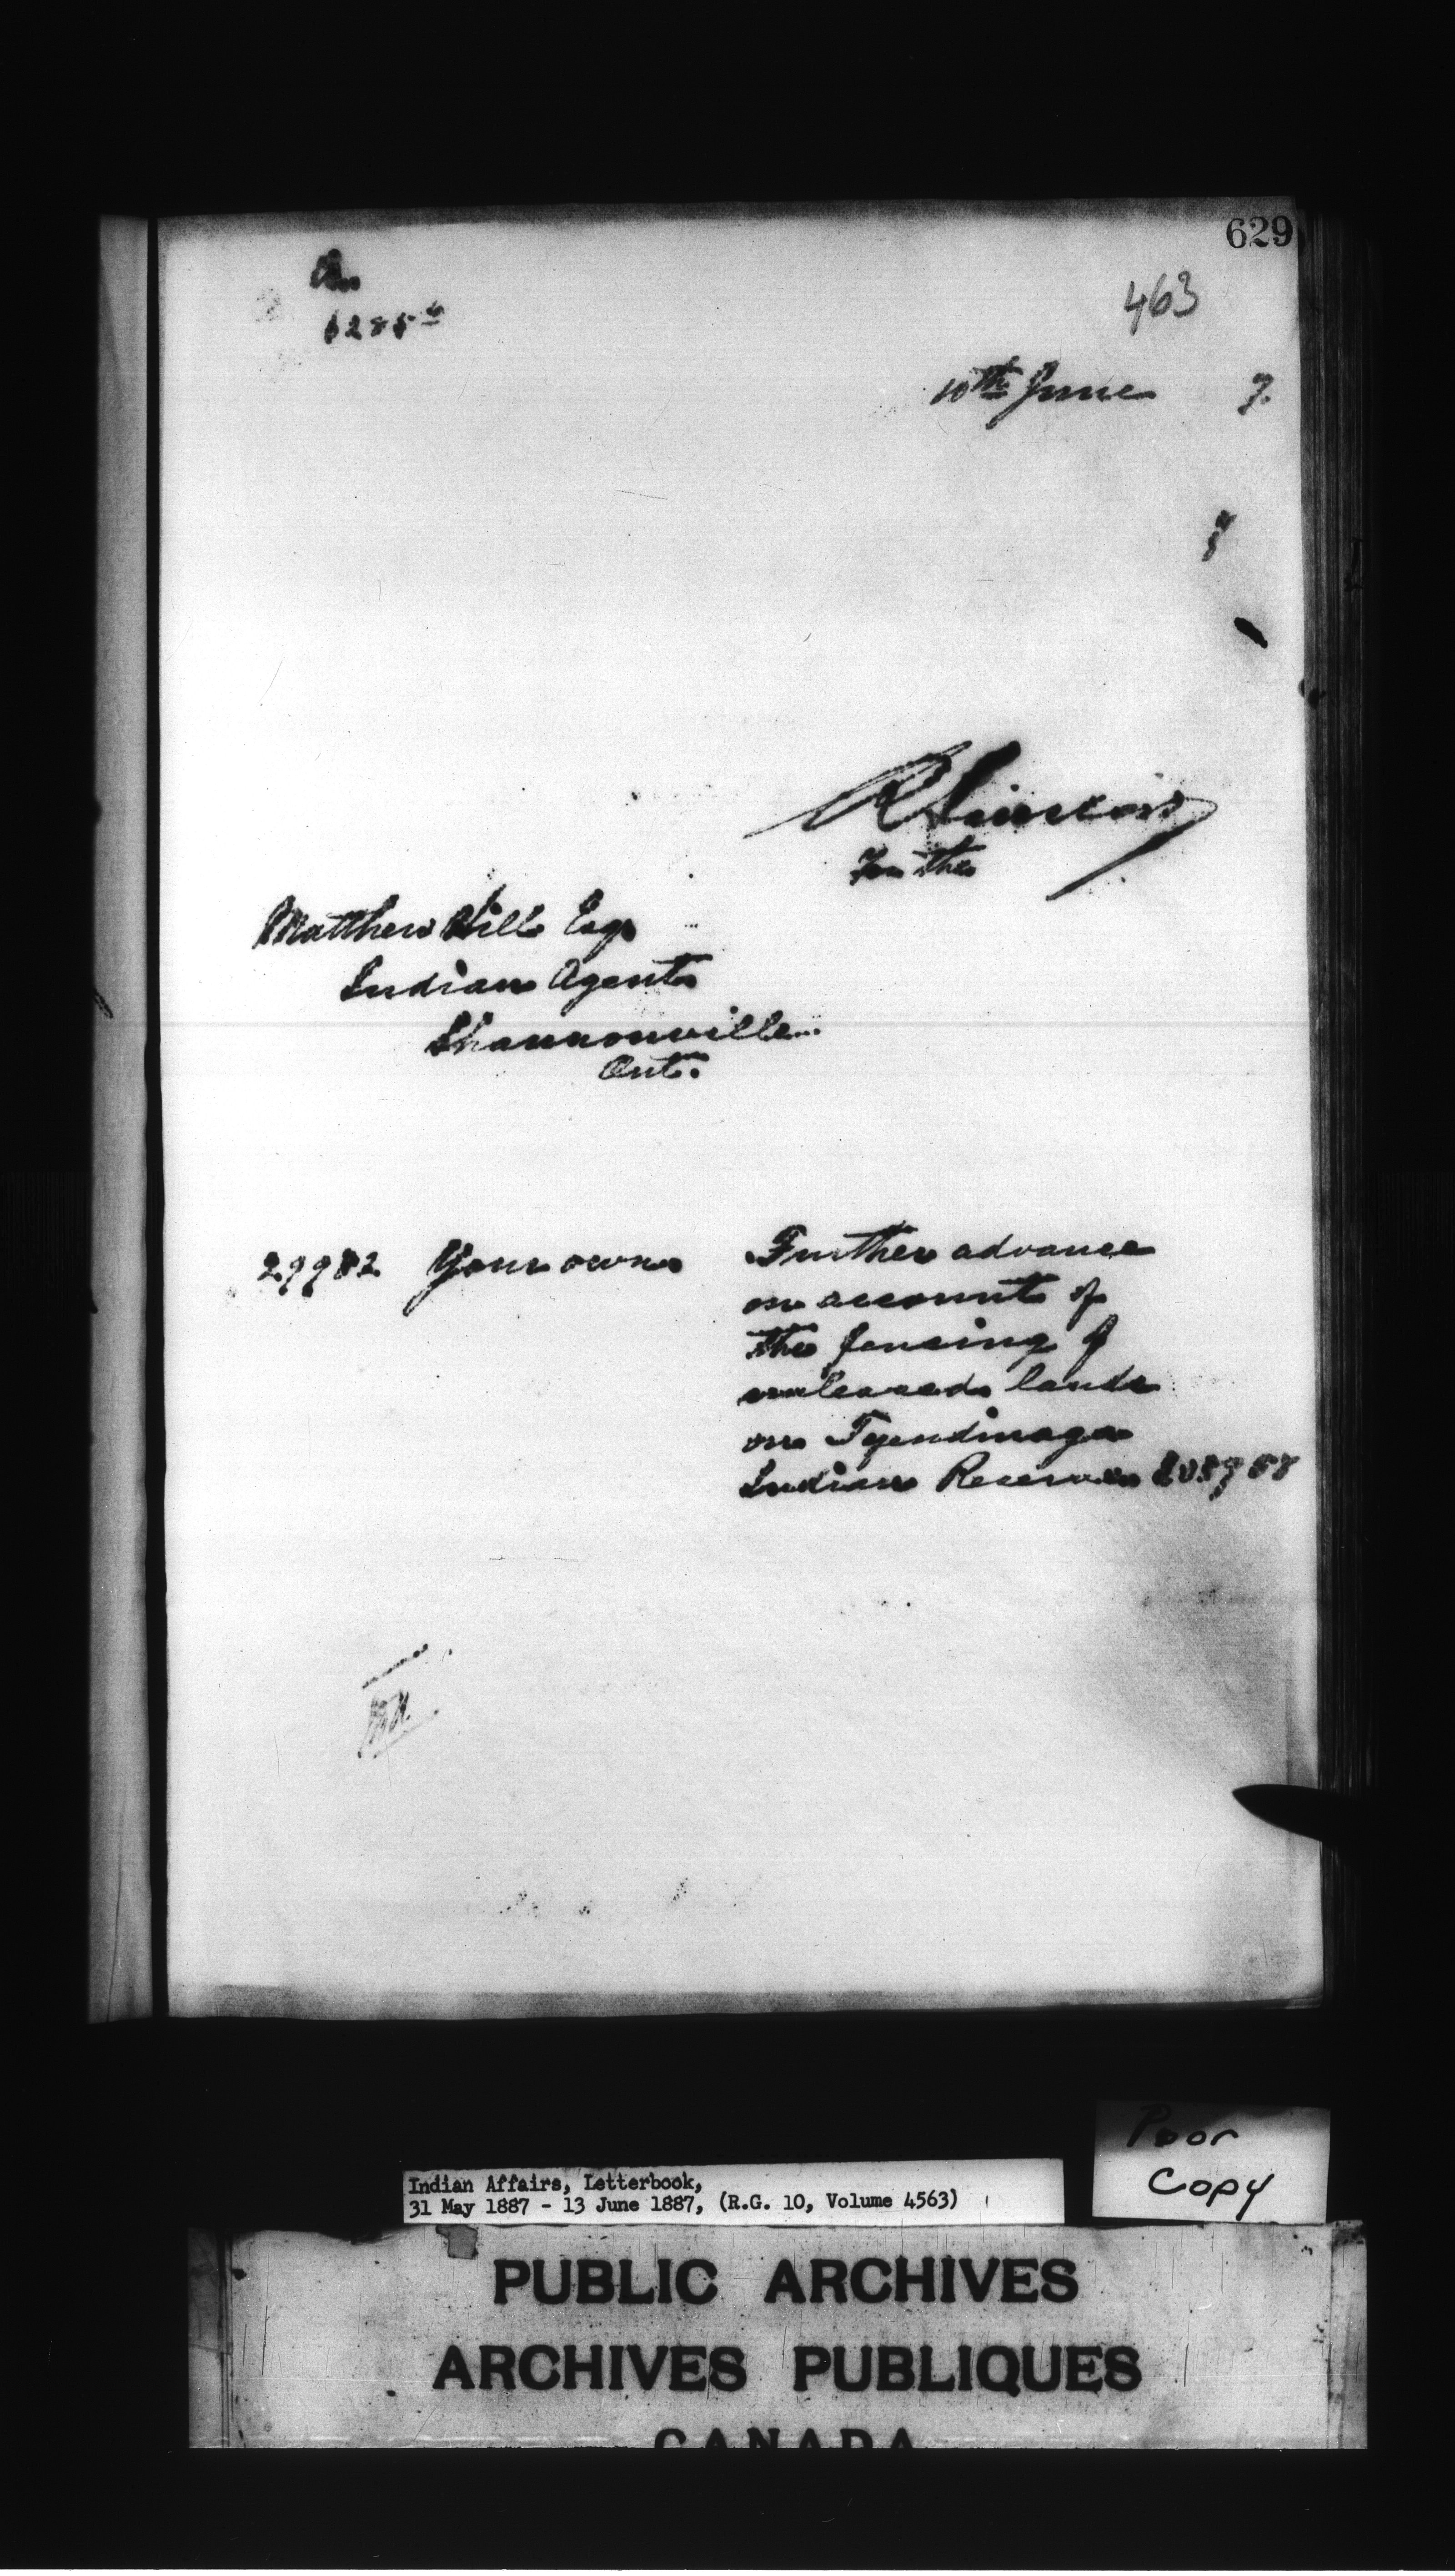 629
463
10th June 7.
R Sinclair
For the
Matthew Hill Esq
Indian Agent
Shannonville
Ont.
29982 Your own Further advance
on account of
the fencing of
uncleared lands
on Tyendinaga
Indian Reserve
Poor
Copy
Indian Affairs, Letterbook,
31 May 1887 - 13 June 1887, (R.G. 10, Volume 4563)
PUBLIC ARCHIVES
ARCHIVES PUBLIQUES
CANADA